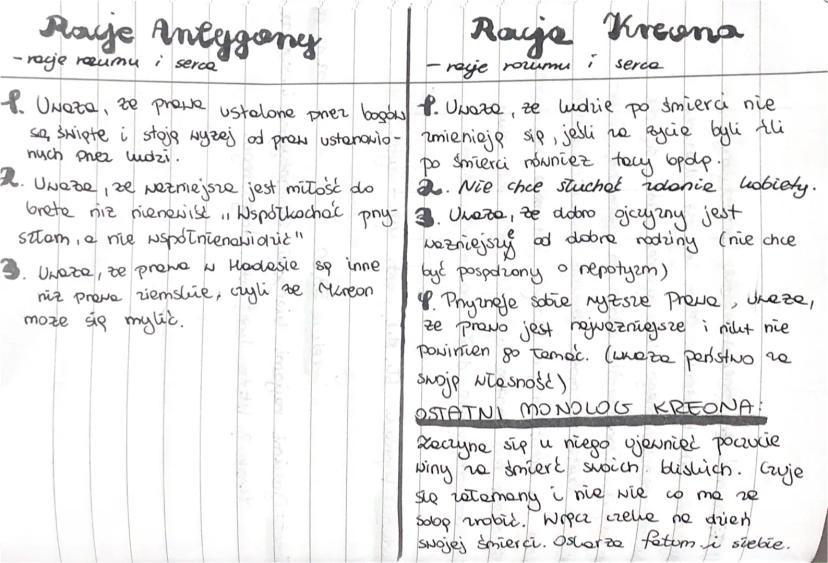 Racje Antygony
- racje rozumu i serca
1. Uważa, że prawa ustalone przez bogów
są święte i stoją wyżej od praw ustanowio-
nych przez ludzi.
2. Uważa, że ważniejsza jest miłość do
brata niż nienawiść "Współkochać przy-
szłam, a nie współnienawidzić"
3. Uważa, że prawa w Hadesie są inne
niż prawa ziemskie, czyli że Kreon
może się mylić.
Racje Kreona
- racje rozumu i serca
1. Uważa, że ludzie po śmierci nie
zmieniają się, jeśli za życia byli źli
po śmierci również tacy będą.
2. Nie chce słuchać zdania kobiety.
3. Uważa, że dobro ojczyzny jest
ważniejsze od dobra rodziny (nie chce
być posądzony o nepotyzm)
4. Przyznaje sobie wyższe Prawa, uważa,
że prawo jest najważniejsze i nikt nie
powinien go łamać. (uważa państwo za
swoją własność)
OSTATNI MONOLOG KREONA:
Zaczyna się u niego ujawniać poczucie
winy za śmierć swoich bliskich. Czuje
się załamany i nie wie co ma ze
sobą zrobić. Wręcz czeka na dzień
swojej śmierci. Oskarża fatum i siebie.